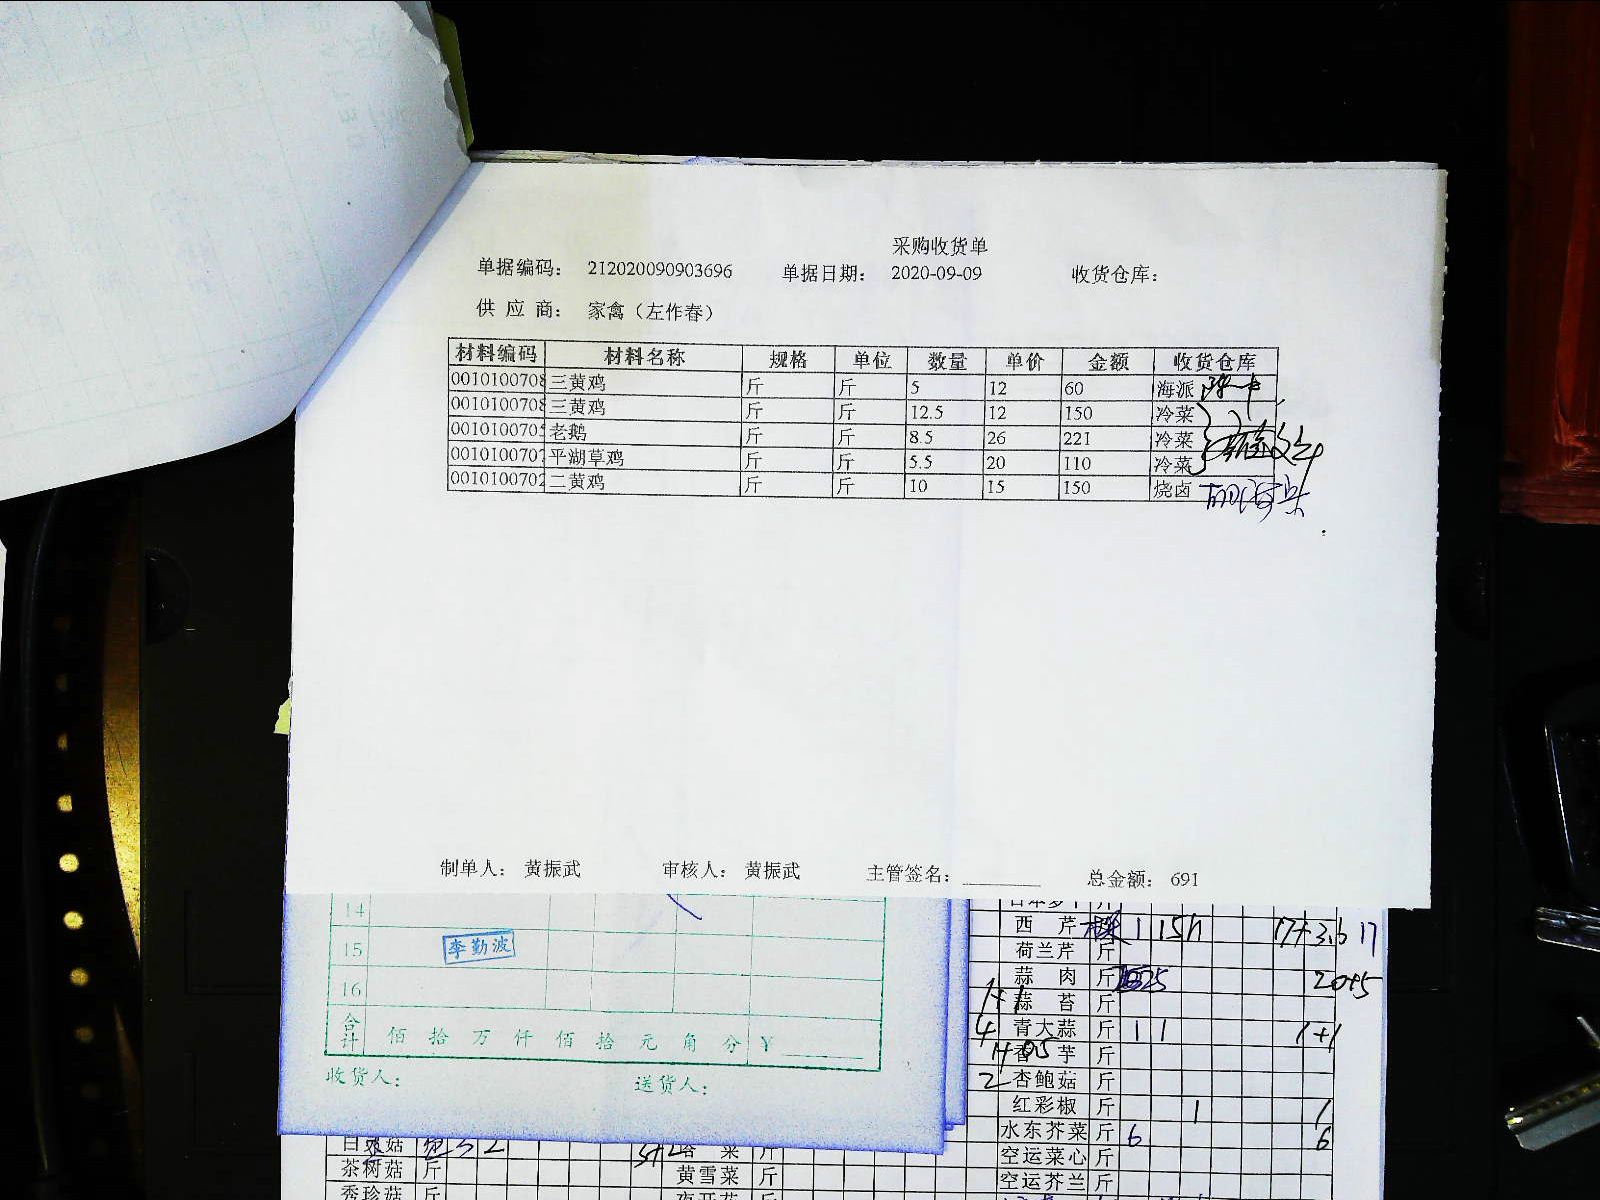 采购收货单
单据编码： 212020090903696 单据日期： 2020-09-09 收货仓库：
供 应 商： 家禽（左作春）
材料编码 材料名称 规格 单位 数量 单价 金额 收货仓库
0010100708 三黄鸡 斤 斤 5 12 60 海派
0010100708 三黄鸡 斤 斤 12.5 12 150 冷菜
001010070 老鹅 斤 斤 8.5 26 221 冷菜
001010070 平湖草鸡 斤 斤 5.5 20 110 冷菜
0010100702 二黄鸡 斤 斤 10 15 150 烧卤
制单人： 黄振武 审核人： 黄振武 主管签名： 总金额： 691
14
15 李勤波
16
合计 佰 拾 万 仟 佰 拾 元 角 分 ¥
收货人： 送货人：
西 芹 1 15 17+3.6 17
荷兰芹 斤
蒜 肉 斤
蒜 苔 斤
4 青大蒜 斤 1 1 1+1
香 芋 斤
2 杏鲍菇 斤
红彩椒 斤 1 1
水东芥菜 斤 6 6
空运菜心 斤
空运芥兰 斤
茶树菇 斤
黄雪菜 斤
秀珍菇 斤